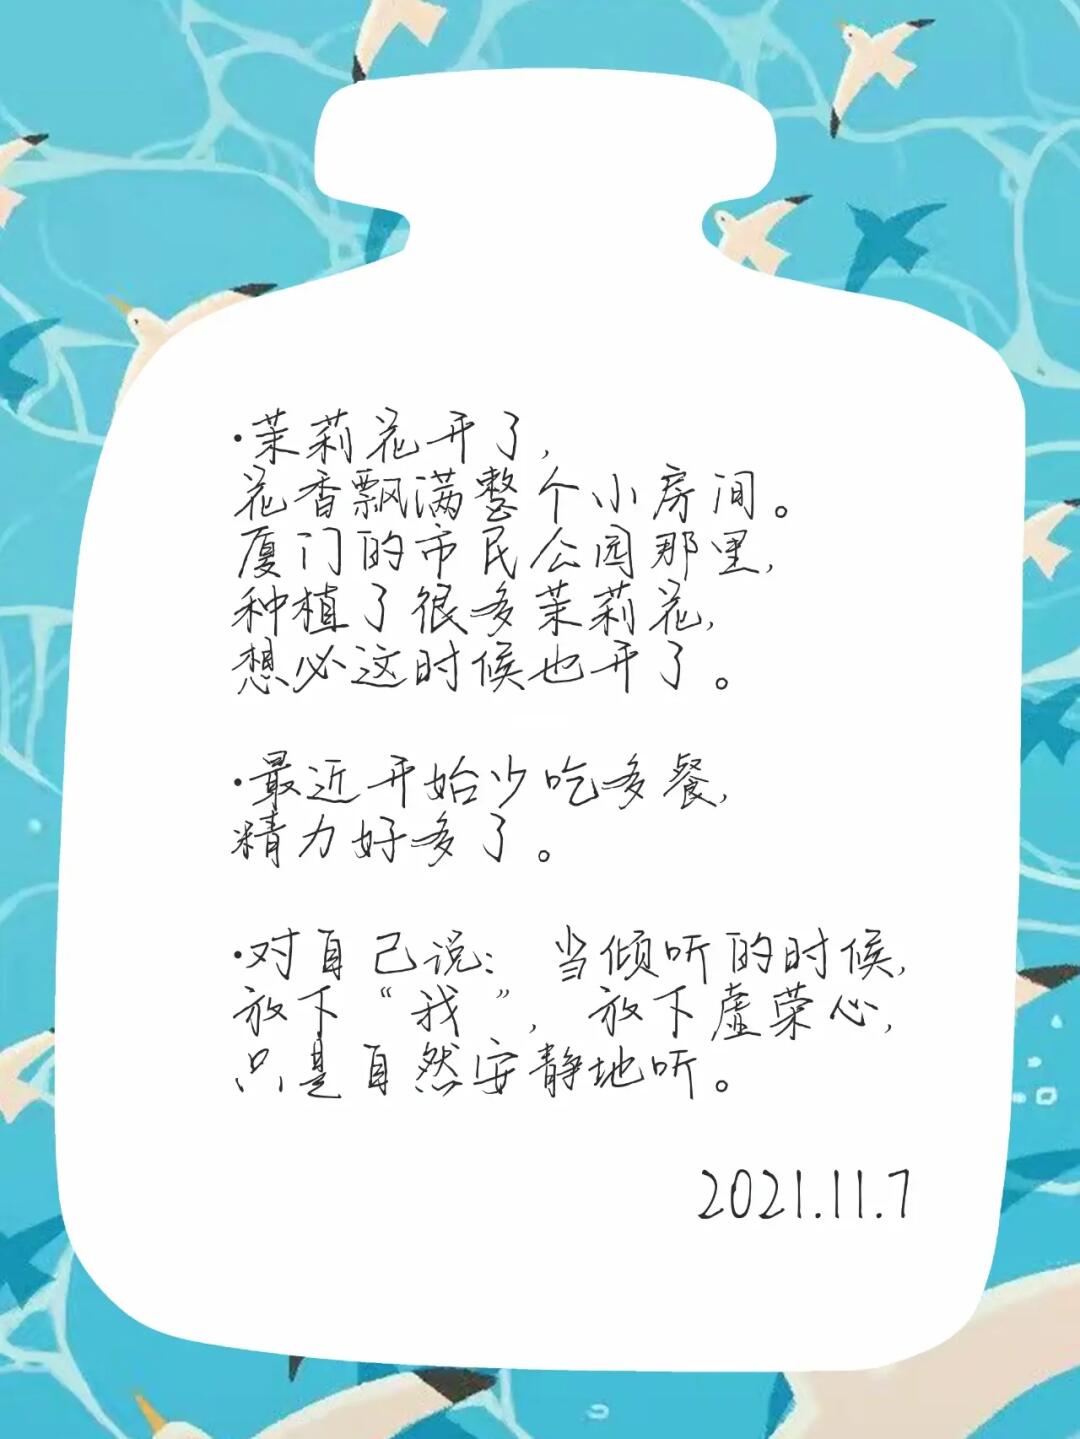 ·茉莉花开了,
花香飘满整个小房间。
厦门的市民公园那里,
种植了很多茉莉花,
想必这时候也开了。
·最近开始少吃多餐,
精力好多了。
·对自己说：当倾听的时候,
放下“我”,放下虚荣心,
只是自然安静地听。
2021.11.7